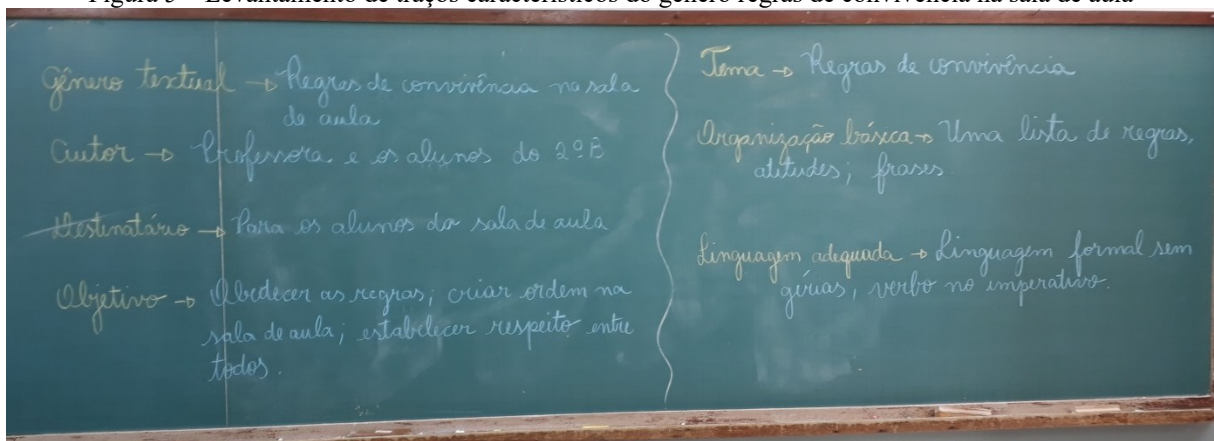 Figura 3 – Levantamento de traços característicos do gênero regras de convivência na sala de aula
Gênero textual → Regras de convivência na sala
de aula
Autor → Professora e os alunos do 2º B
Destinatário → Para os alunos da sala de aula
Objetivo → Obedecer as regras; criar ordem na
sala de aula; estabelecer respeito entre
todos.
Tema → Regras de convivência
Organização básica → Uma lista de regras,
atitudes; frases
Linguagem adequada → Linguagem formal sem
gírias, verbo no imperativo.